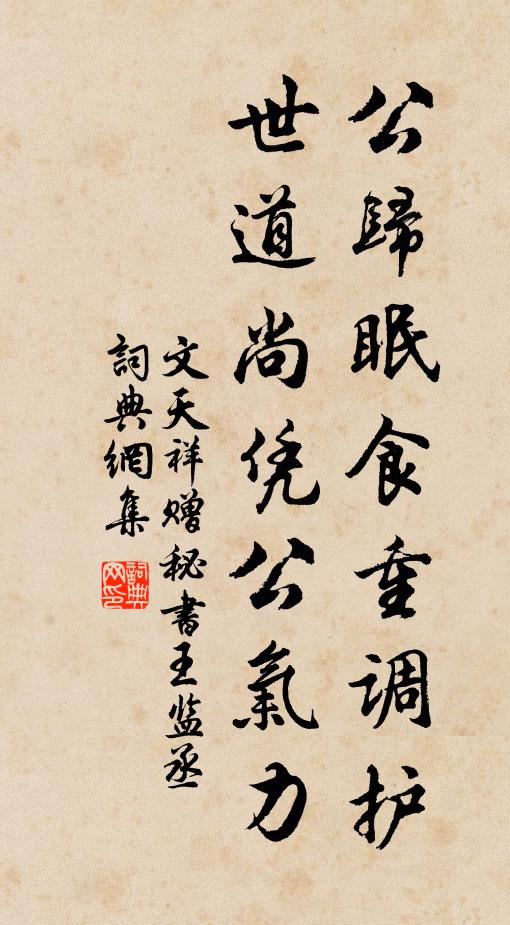 公歸眠食重调护
世道尚凭公氣力
文天祥赠秘書王监丞
詞典網集
詞典网印